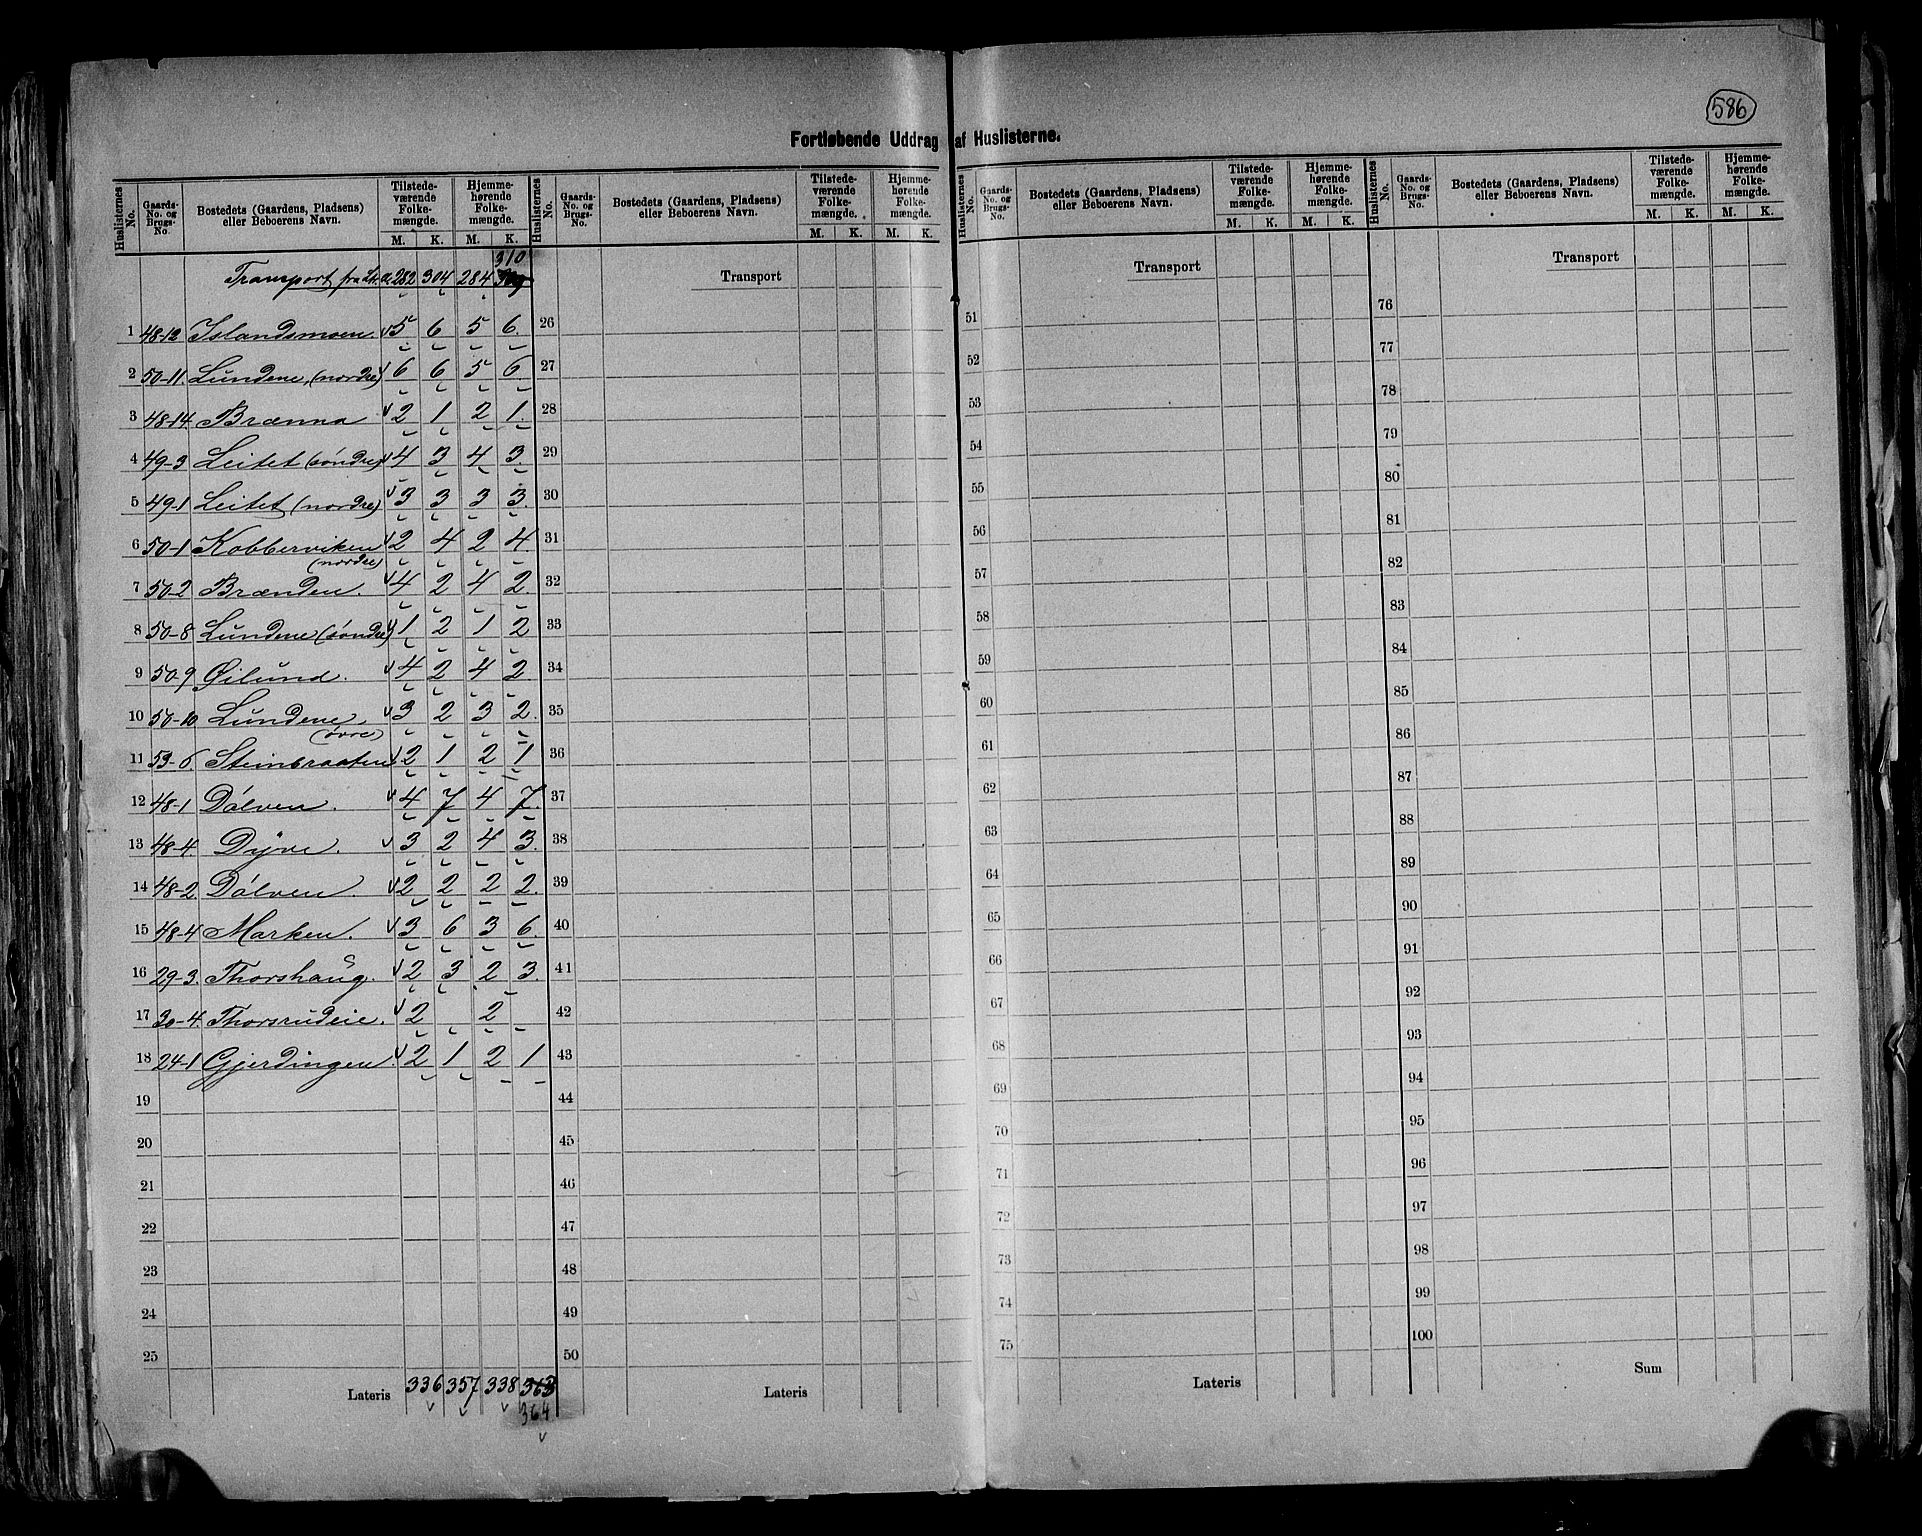 586
Fortløbende Uddrag af Huslisterne.
Huslisternes No. Gaards-No. og Brugs-No. Bostedets (Gaardens, Pladsens) eller Beboerens Navn. Tilstedeværende Folkemængde. M. K. Hjemmehørende Folkemængde. M. K.
Huslisternes No. Gaards-No. og Brugs-No. Bostedets (Gaardens, Pladsens) eller Beboerens Navn. Tilstedeværende Folkemængde. M. K. Hjemmehørende Folkemængde. M. K.
Huslisternes No. Gaards-No. og Brugs-No. Bostedets (Gaardens, Pladsens) eller Beboerens Navn. Tilstedeværende Folkemængde. M. K. Hjemmehørende Folkemængde. M. K.
Huslisternes No. Gaards-No. og Brugs-No. Bostedets (Gaardens, Pladsens) eller Beboerens Navn. Tilstedeværende Folkemængde. M. K. Hjemmehørende Folkemængde. M. K.
310
Transport fra 282 304 284 309
1 48-12 Islandsmoen. 5 6 5 6.
2 50-11. Lundene, (nordre) 6 6 5 6
3 48-14. Brænna 2 1 2 1.
4 49-3 Leitet (søndre) 4 3 4 3.
5 49-1 Leitet (nordre) 3 3 3 3.
6 50-1 Kobberviken (nordre) 2 4 2 4.
7 50-2 Brænden. 4 2 4 2
8 50-8 Lundene (søndre) 1 2 1 2
9 50-9 Øilund. 4 2 4 2
10 50-10 Lundene (øvre) 3 2 3 2.
11 53-6. Stensraaten 2 1 2 1
12 48-1 Dölven. 4 7 4 7.
13 48-4. Dyve. 3 2 4 3.
14 48-2. Dölven. 2 2 2 2.
15 48-4 Marken. 3 6 3 6.
16 29-3. Thorshaug. 2 3 2 3.
17 30-4. Thorsrudeie. 2 2
18 24-1 Gjerdingen. 2 1 2 1
19
20
21
22
23
24
25
Lateris 336 357 338 363
364
Transport
26
27
28
29
30
31
32
33
34
35
36
37
38
39
40
41
42
43
44
45
46
47
48
49
50
Lateris
Transport
51
52
53
54
55
56
57
58
59
60
61
62
63
64
65
66
67
68
69
70
71
72
73
74
75
Lateris
Transport
76
77
78
79
80
81
82
83
84
85
86
87
88
89
90
91
92
93
94
95
96
97
98
99
100
Sum